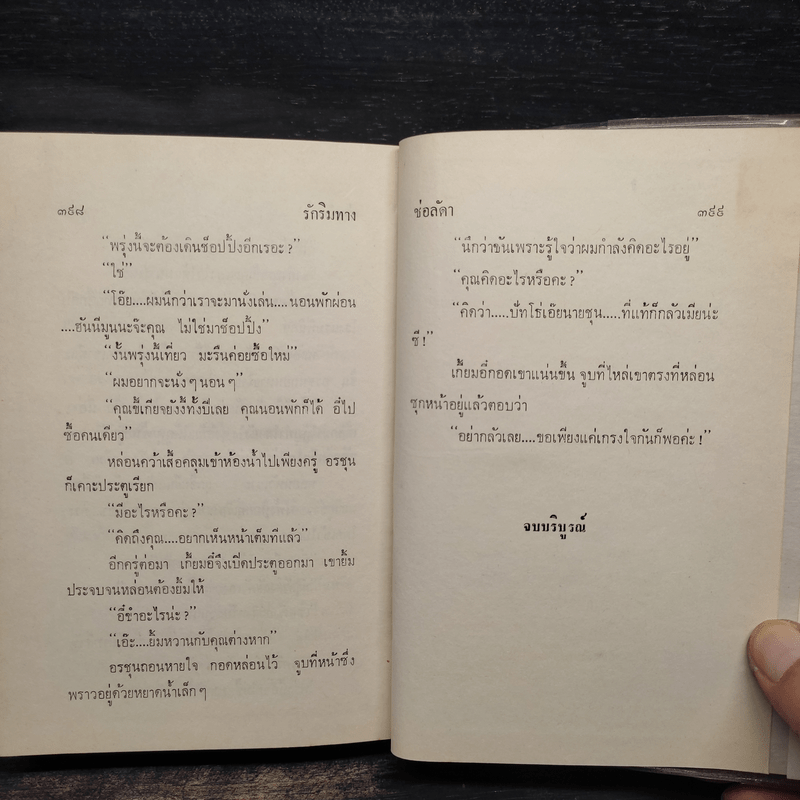 ๓๙๘ รักริมทาง
“พรุ่งนี้จะต้องเดินช็อปปิ้งอีกเรอะ?”
“ใช่”
“โอ๊ย....ผมนึกว่าเราจะมานั่งเล่น....นอนพักผ่อน
....ฮันนีมูนนะจ๊ะคุณ ไม่ใช่มาช็อปปิ้ง”
“งั้นพรุ่งนี้เที่ยว มะรืนค่อยซื้อใหม่”
“ผมอยากจะนั่งๆ นอนๆ”
“คุณขี้เกียจยังงี้ทั้งปีเลย คุณนอนพักก็ได้ อี๋ไป
ซื้อคนเดียว”
หล่อนคว้าเสื้อคลุมเข้าห้องน้ำไปเพียงครู่ อรชุน
ก็เคาะประตูเรียก
“มีอะไรหรือคะ?”
“คิดถึงคุณ....อยากเห็นหน้าเต็มทีแล้ว”
อีกครู่ต่อมา เกี้ยมอี๋จึงเปิดประตูออกมา เขายิ้ม
ประจบจนหล่อนต้องยิ้มให้
“อี๋ขำอะไรน่ะ?”
“เอ๊ะ....ยิ้มหวานกับคุณต่างหาก”
อรชุนถอนหายใจ กอดหล่อนไว้ จูบที่หน้าซึ่ง
พราวอยู่ด้วยหยาดน้ำเล็กๆ
ช่อลัดา ๓๙๙
“นึกว่าขันเพราะรู้ใจว่าผมกำลังคิดอะไรอยู่”
“คุณคิดอะไรหรือคะ?”
“คิดว่า.....ปัทโธ่เอ๊ยนายชุน.....ที่แท้ก็กลัวเมียน่ะ
ซี!”
เกี้ยมอี๋กอดเขาแน่นขึ้น จูบที่ไหล่เขาตรงที่หล่อน
ซุกหน้าอยู่แล้วตอบว่า
“อย่ากลัวเลย....ขอเพียงแค่เกรงใจกันก็พอค่ะ!”
จบบริบูรณ์